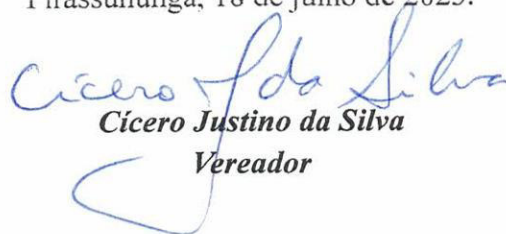 Pirassununga, 18 de julho de 2023.
Cícero J da Silva
Cícero Justino da Silva
Vereador